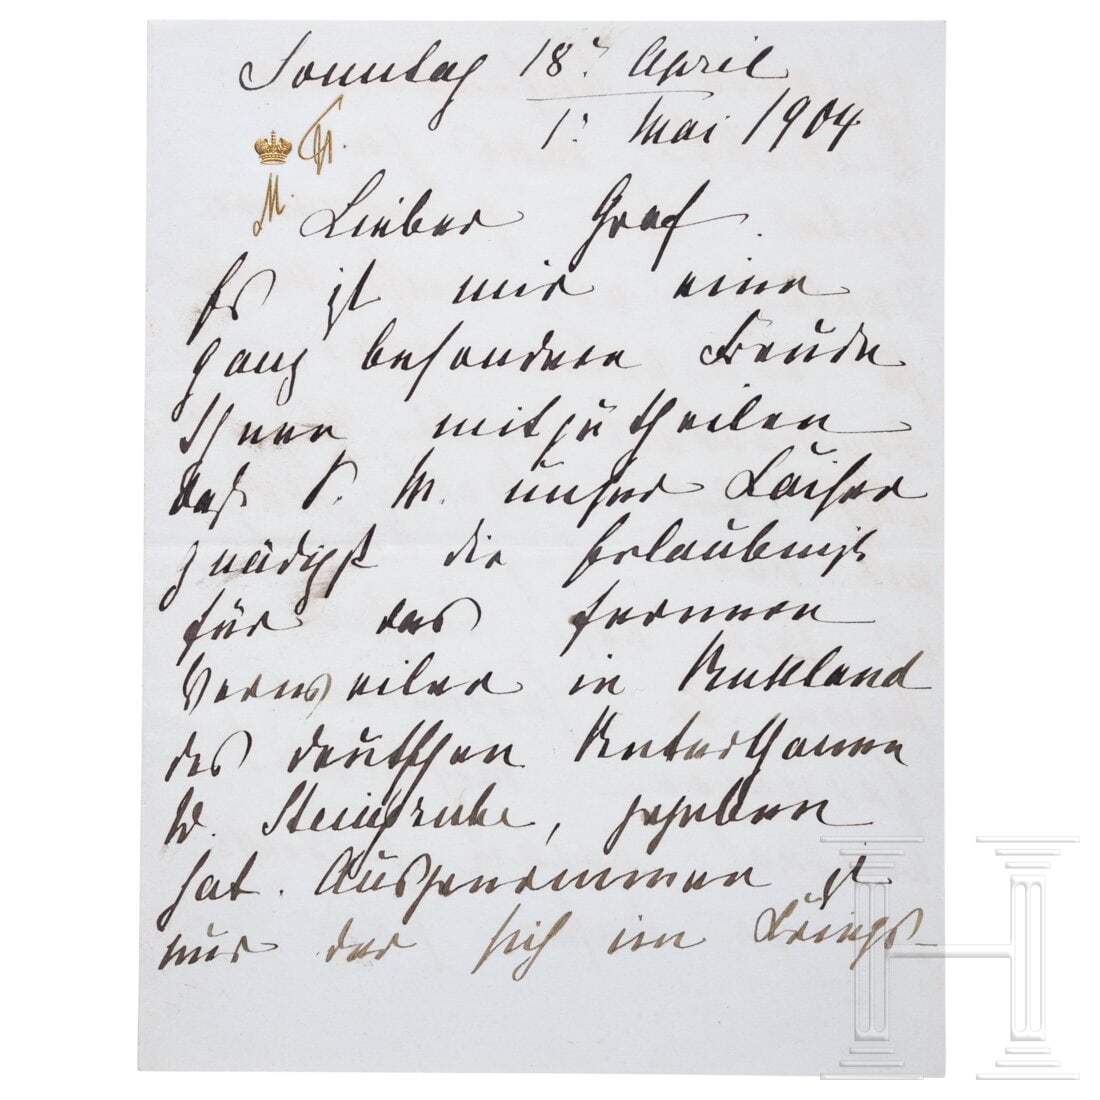 Sonntag 18. April
1. Mai 1904
M.
Lieber Graf.
Es ist mir eine
ganz besondere Freude
Ihnen mitzutheilen
daß S. M. unser Kaiser
gnädigst die Erlaubniß
für das fernere
Verweilen in Rußland
des deutschen Unterthanen
W. Steingrube, gegeben
hat. Ausgenommen ist
nur der sich im Kriegs-